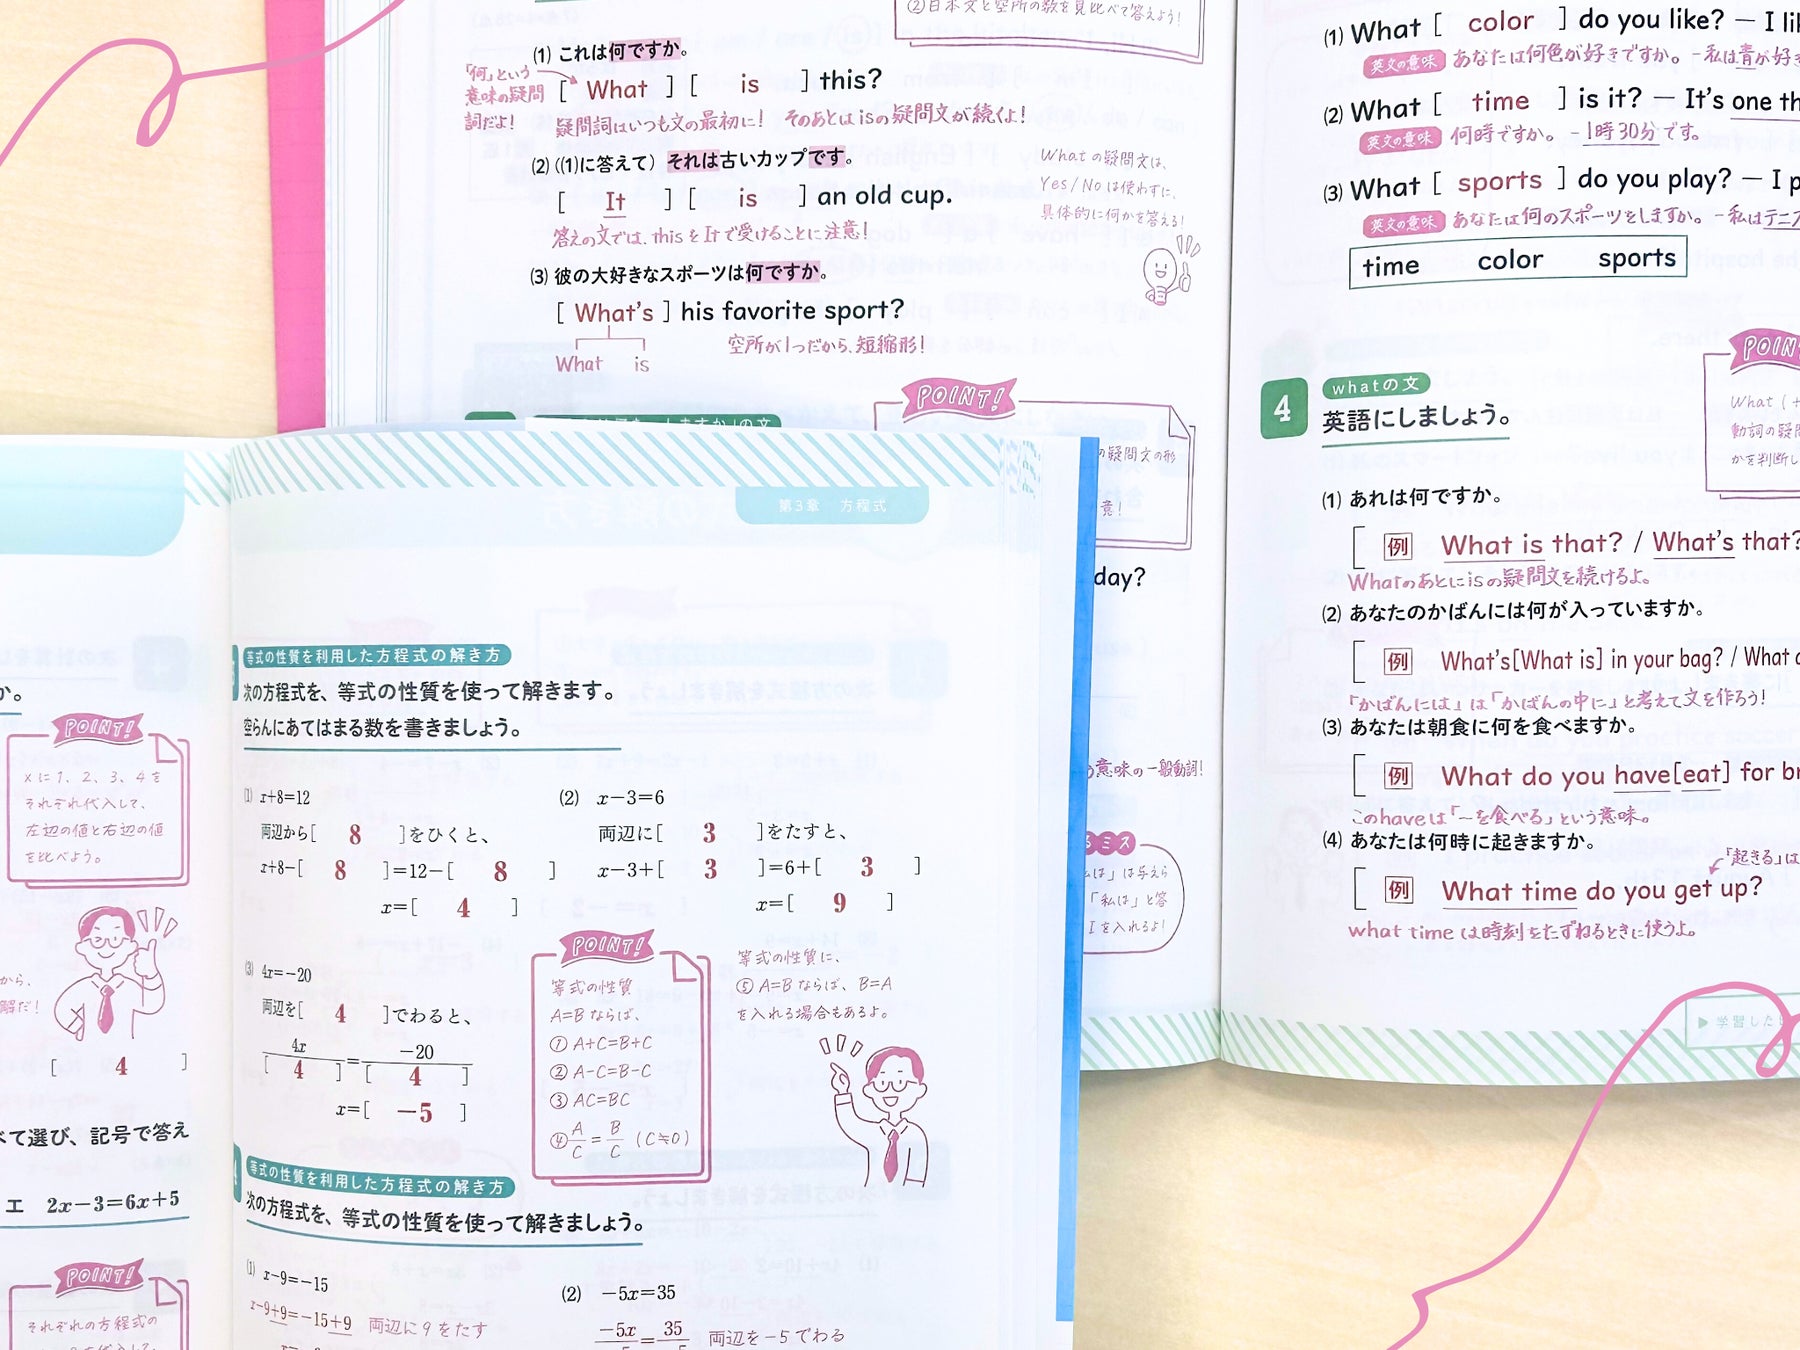 ②日本文と空所の数を見比べて答えよう!
(1) これは何ですか。
「何」という
意味の疑問
詞だよ!
[ What ] [ is ] this?
疑問詞はいつも文の最初に! そのあとはisの疑問文が続くよ!
(2) ((1)に答えて) それは古いカップです。
[ It ] [ is ] an old cup.
答えの文では、thisをItで受けることに注意!
Whatの疑問文は、
Yes/Noは使わずに、
具体的に何かを答える!
(3) 彼の大好きなスポーツは何ですか。
[ What's ] his favorite sport?
What is
空所が1つだから、短縮形!
POINT!
の疑問文の形
意!
day?
意味の一般動詞!
ミス
は」は与えら
「私は」と答
Iを入れるよ!
(1) What [ color ] do you like? — I
英文の意味 あなたは何色が好きですか。-私は青が好き
(2) What [ time ] is it? — It's one
英文の意味 何時ですか。-1時30分です。
(3) What [ sports ] do you play? — I
英文の意味 あなたは何のスポーツをしますか。-私はテニス
time color sports
4 whatの文
英語にしましょう。
POINT
What (+
動詞の疑問
かを判断し
(1) あれは何ですか。
[ 例 What is that? / What's that?
Whatのあとにisの疑問文を続けるよ。
(2) あなたのかばんには何が入っていますか。
[ 例 What's[What is] in your bag? / What
「かばんには」は「かばんの中に」と考えて文を作ろう!
(3) あなたは朝食に何を食べますか。
[ 例 What do you have[eat] for
このhaveは「~を食べる」という意味。
(4) あなたは何時に起きますか。
「起きる」は
[ 例 What time do you get up?
what timeは時刻をたずねるときに使うよ。
▶学習した
第3章 方程式
か。
POINT!
xに1、2、3、4を
それぞれ代入して、
左辺の値と右辺の値
を比べよう。
から、
解だ!
[ 4 ]
べて選び、記号で答え
エ 2x−3=6x+5
POINT!
それぞれの方程式の
等式の性質を利用した方程式の解き方
次の方程式を、等式の性質を使って解きます。
空らんにあてはまる数を書きましょう。
(1) x+8=12
両辺から[ 8 ]をひくと、
x+8−[ 8 ]=12−[ 8 ]
x=[ 4 ]
(2) x−3=6
両辺に[ 3 ]をたすと、
x−3+[ 3 ]=6+[ 3 ]
x=[ 9 ]
(3) 4x=−20
両辺を[ 4 ]でわると、
4x −20
[ 4 ]=[ 4 ]
x=[ −5 ]
POINT!
等式の性質
A=Bならば、
① A+C=B+C
② A−C=B−C
③ AC=BC
④ A/C=B/C (C≒0)
等式の性質に、
⑤ A=Bならば、B=A
を入れる場合もあるよ。
等式の性質を利用した方程式の解き方
次の方程式を、等式の性質を使って解きましょう。
(1) x−9=−15
x−9+9=−15+9 両辺に9をたす
(2) −5x=35
−5x = 35 両辺を−5でわる